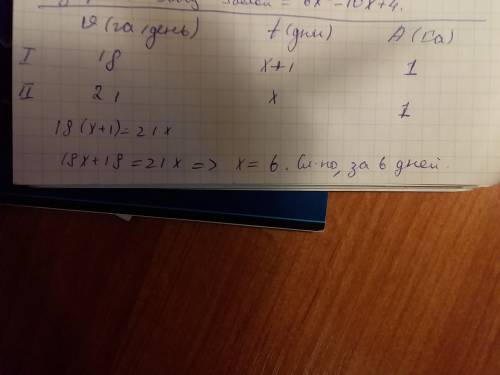 = 6x² - 10x + 4.
υ (га/день) t (дни) A (га)
I 18 x+1 1
II 21 x 1
18(x+1) = 21x
18x+18 = 21x => x = 6. Сл-но, за 6 дней.